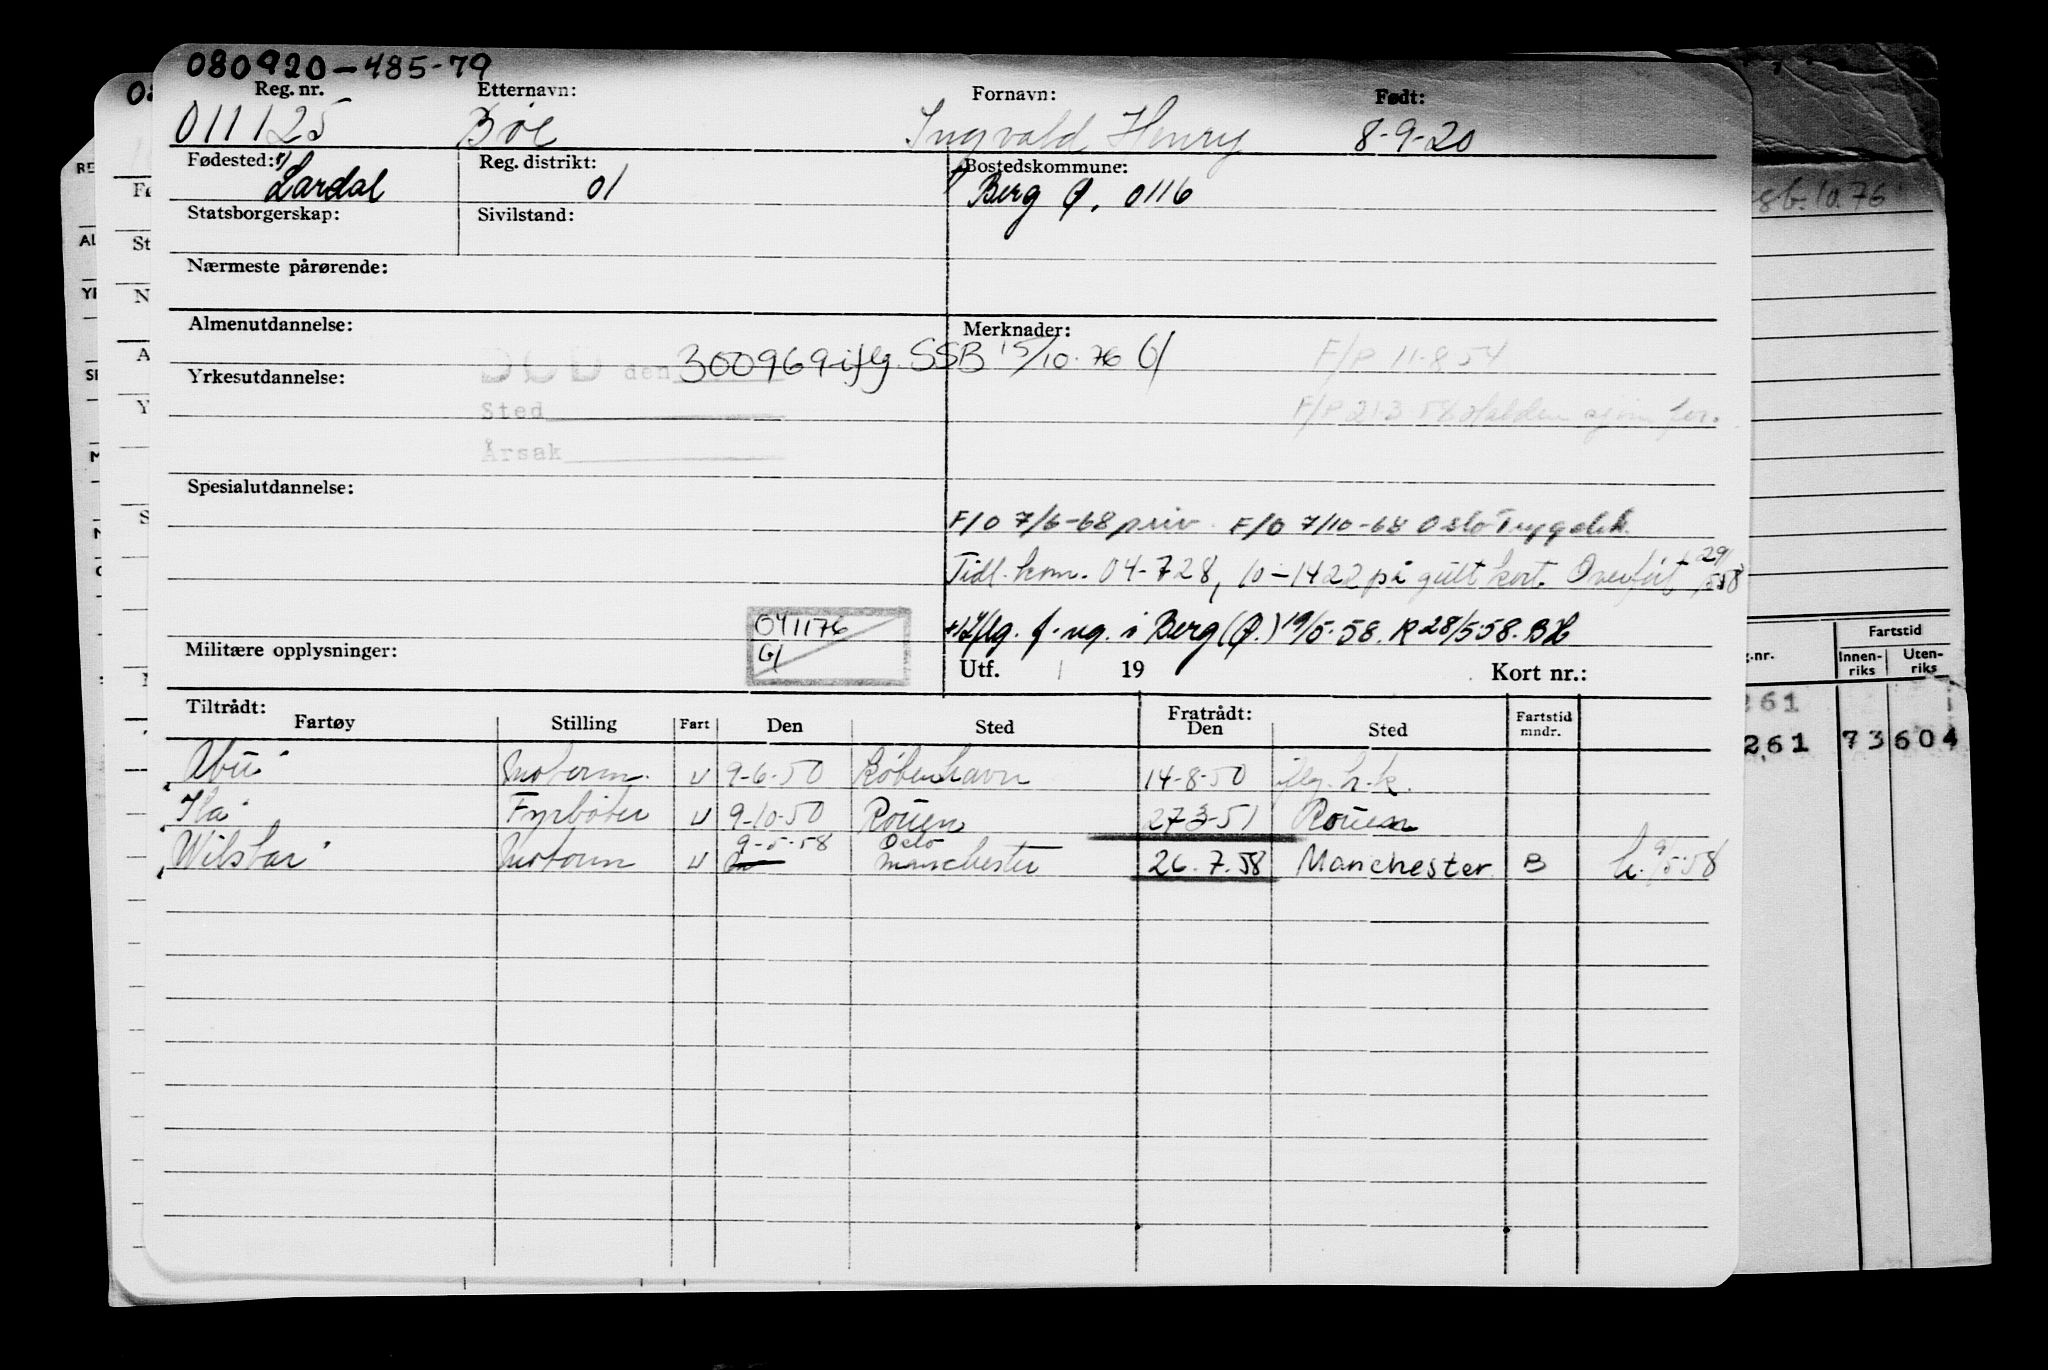 080920-485-79
Reg. nr. Etternavn: Fornavn: Født:
011125 Böe Ingvald Henry 8-9-20
Fødested: Reg. distrikt: Bostedskommune:
Lardal 01 Berg Ø. 0116
Statsborgerskap: Sivilstand:
Nærmeste pårørende:
Almenutdannelse: Merknader:
DØD den 300969 iflg. SSB 15/10.76 F/P 11-8 54
Yrkesutdannelse:
Sted F/P 21-3 58 Halden
Årsak
Spesialutdannelse:
F/O 7/6-68 priv. F/O 7/10-68 Oslo Trygdek.
Tidl. kom. 04-728, 10-1422 på gult kort. Overført 29/5.58
041176
iflg. f. ng. i Berg (Ø.) 19/5-58. R 28/5 58. BH
Militære opplysninger: Utf. 19 Kort nr.:
Tiltrådt: Fratrådt:
Fartøy Stilling Fart Den Sted Den Sted Fartstid mndr.
Abu Motorm. U 9-6-50 København 14-8-50 iflg. h.k.
Ila Fyrbøter U 9-10-50 Rouen 27-3-51 Rouen
9-5-58 Oslo
Wilstar Motorm U Manchester 26.7.58 Manchester B 9/5-58
10.76
Fartstid
g.nr. Innen-riks Uten-riks
261
261 73 604